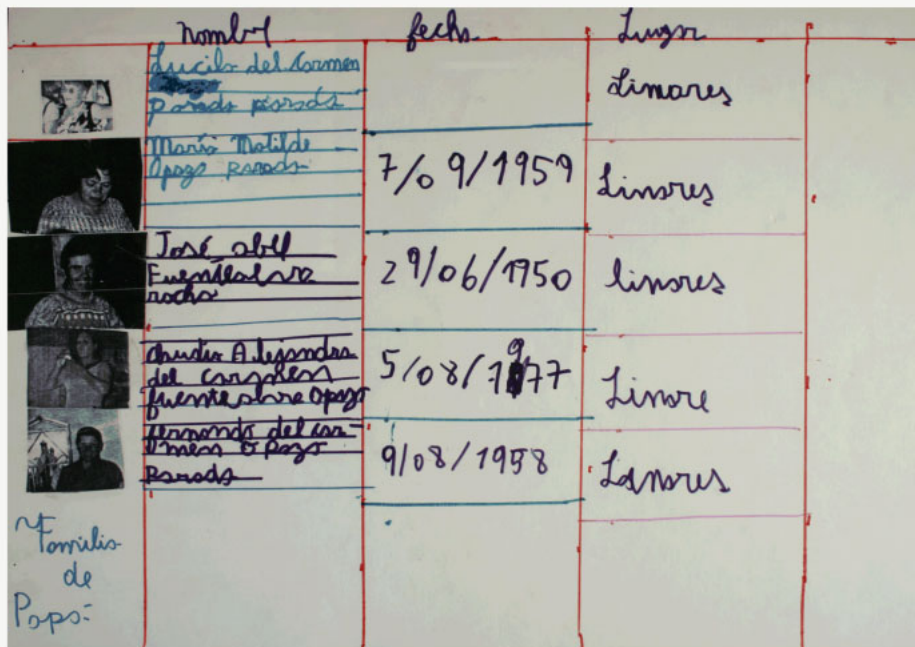 nombre fecha Lugar
Lucila del Carmen
Parada parada Linares
María Matilde
Opazo parada 7/09/1959 Linares
José abel
Fuentealba
rocha 29/06/1950 linares
Alejandra
del Carmen
fuentealba Opazo 5/08/1977 Linare
fernando del Car-
men Opazo
Parada 9/08/1958 Linares
Familia
de
Papá